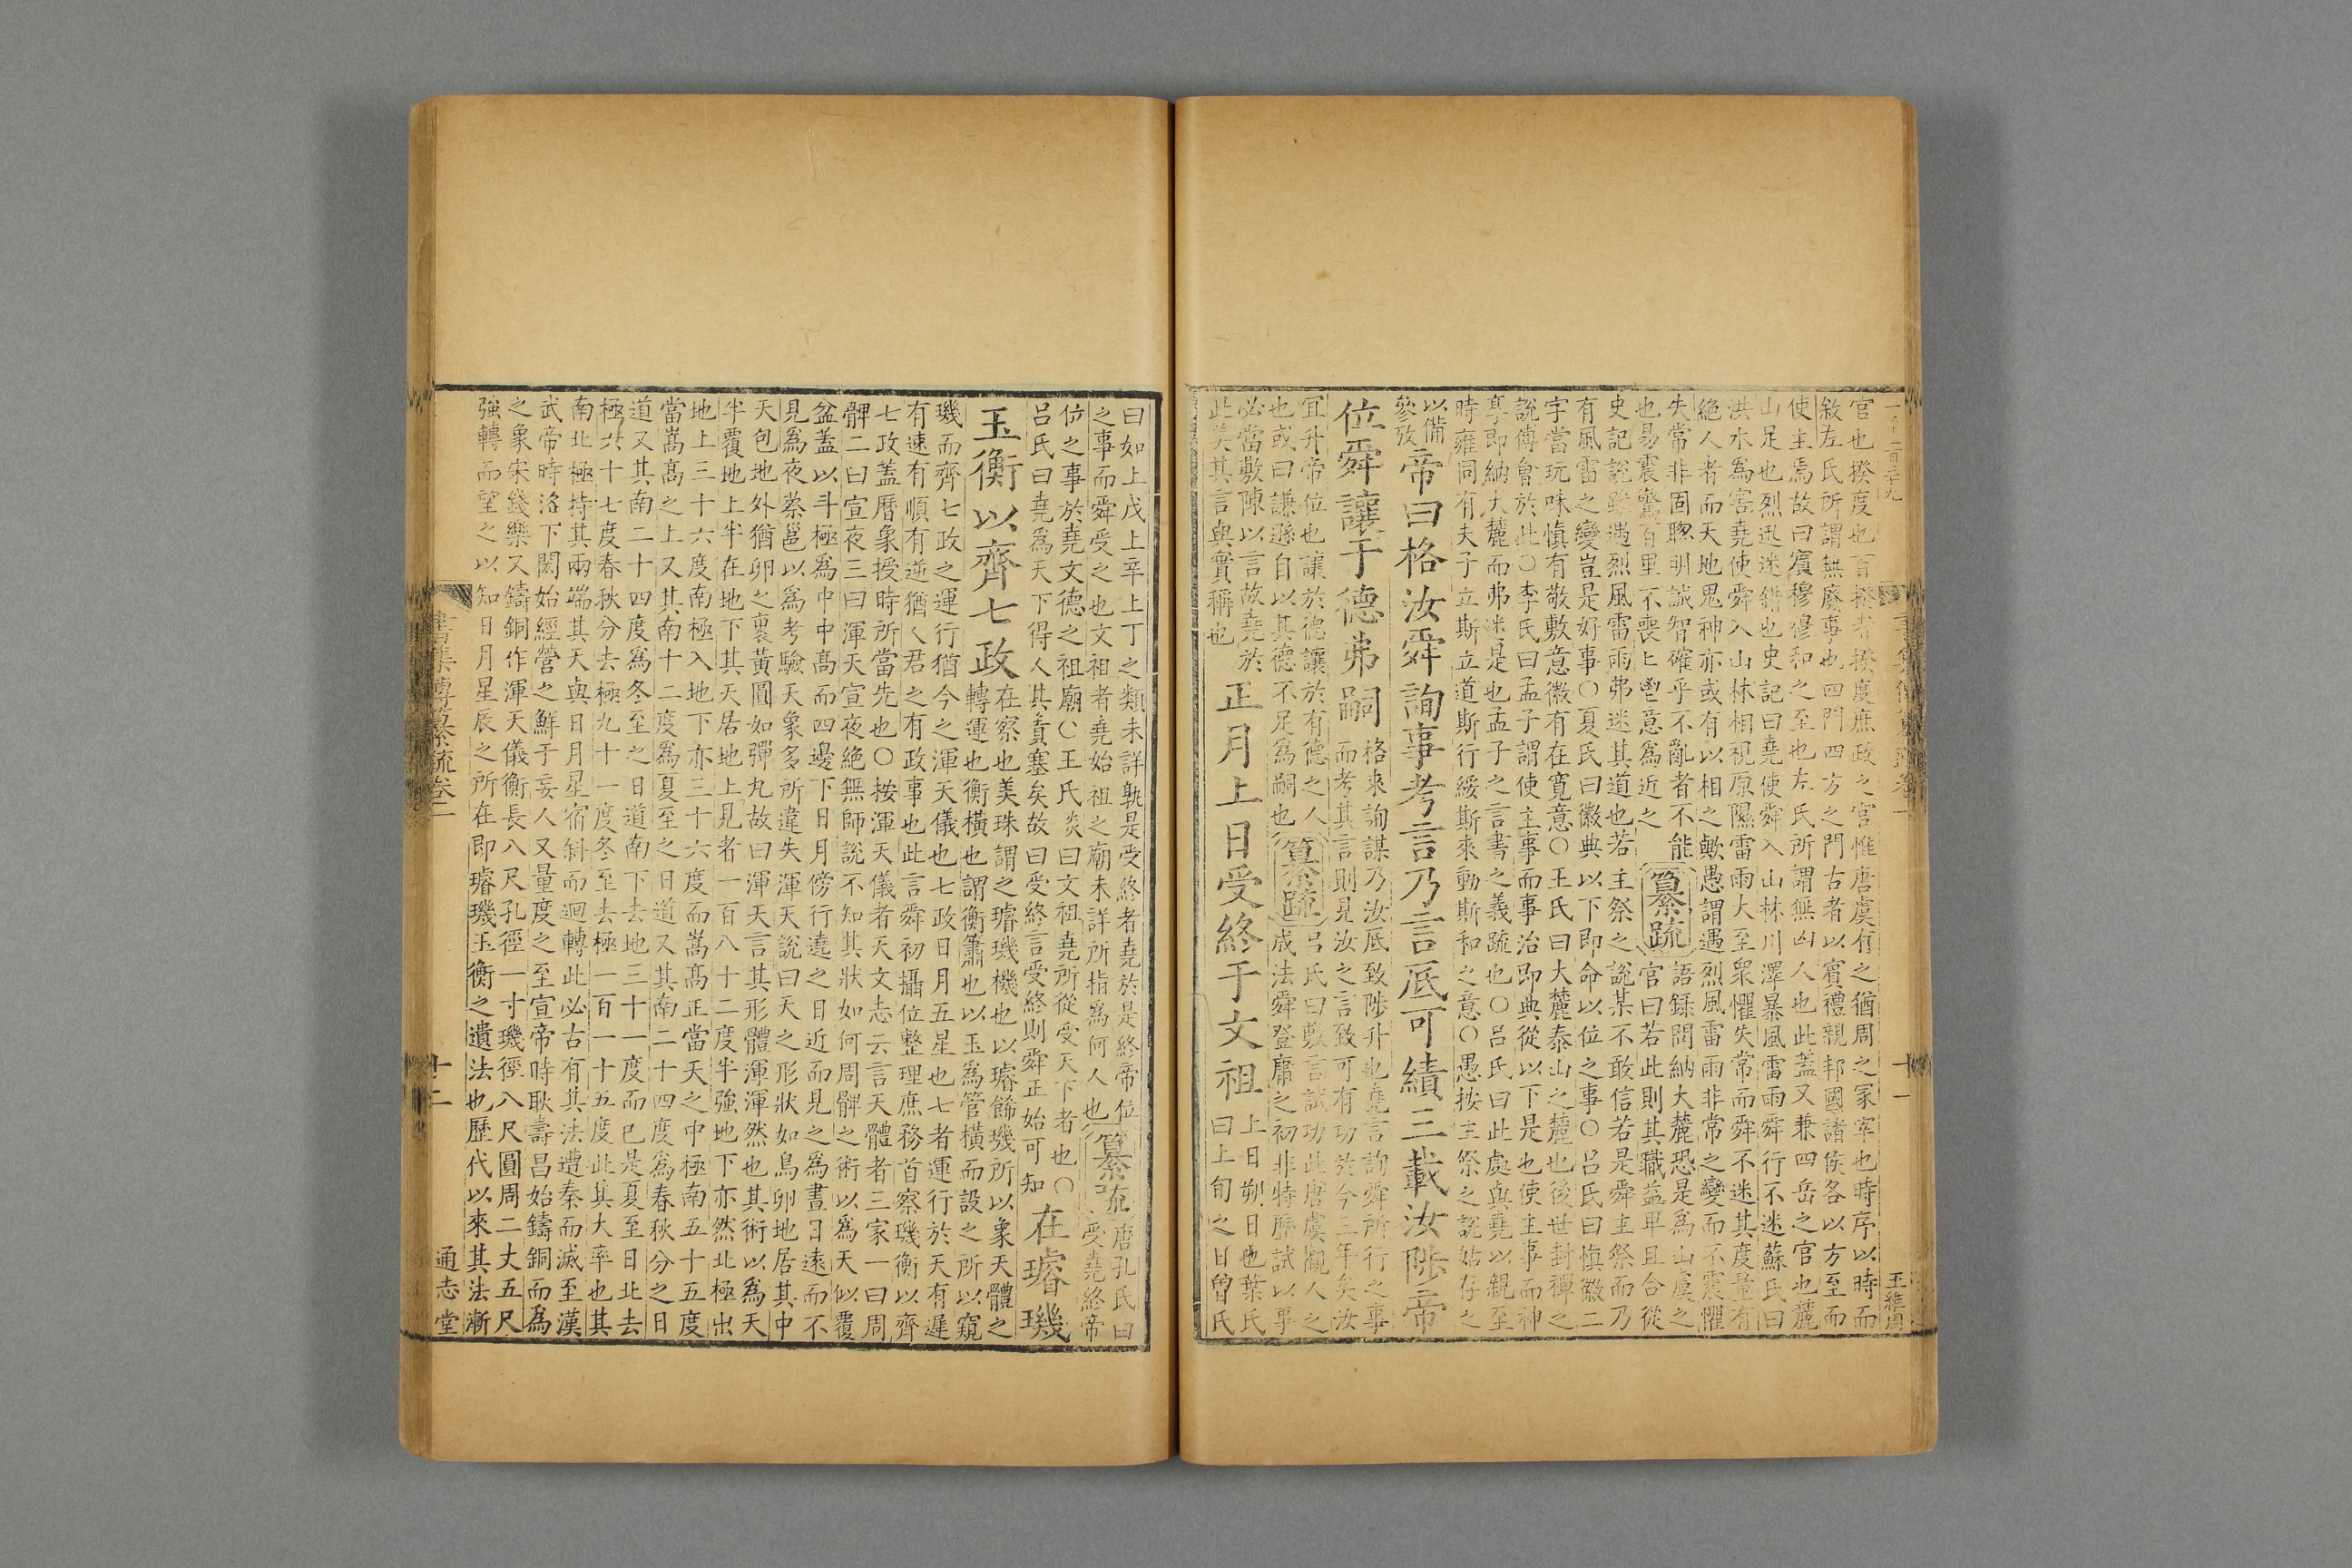 官也揆度也百揆者揆度庶政之官惟唐虞有之猶周之冢宰也時序以時而
敘左氏所謂無廢事也四門四方之門古者以賓禮親邦國諸侯各以方至而
使主焉故曰賓穆穆和之至也左氏所謂無凶人也此蓋又兼四岳之官也麓
山足也烈迅迷錯也史記曰堯使舜入山林川澤暴風雷雨舜行不迷蘇氏曰
洪水為害堯使舜入山林相視原隰雷雨大至衆懼失常而舜不迷其度量有
絶人者而天地鬼神亦或有以相之歟愚謂遇烈風雷雨非常之變而不震懼
失常非固聰明誠智確乎不亂者不能
也易震驚百里不喪匕鬯意為近之
纂疏
語録問納大麓恐是為山虞之
官曰若此則其職益卑且合從
史記說蹤遇烈風雷雨弗迷其道也若主祭之說某不敢信若是舜主祭而乃
有風雷之變豈是好事○夏氏曰徽典以下即命以位之事○呂氏曰慎徽二
字當玩味慎有敬敷意徽有在寬意○王氏曰大麓泰山之麓也後世封禪之
說傅會於此○李氏曰孟子謂使主事而事治即典從以下是也使主事而神
享即納大麓而弗迷是也孟子之言書之義疏也○呂氏曰此處與堯以親至
時雍同有夫子立斯立道斯行綏斯來動斯和之意○愚按主祭之說姑存之
以備
參攷
帝曰格汝舜詢事考言乃言厎可績三載汝陟帝
位舜讓于德弗嗣
格來詢謀乃汝厎致陟升也堯言詢舜所行之事
而考其言則見汝之言致可有功於今三年矣汝
宜升帝位也讓於德讓於有德之人
也或曰謙遜自以其德不足為嗣也
纂疏
呂氏曰敷言試功此唐虞觀人之
成法舜登庸之初非特歷試以事
必當敷陳以言故堯於
此美其言與實稱也
正月上日受終于文祖
上日朔日也葉氏
曰上旬之日曾氏
王稚周
曰如上戊上辛上丁之類未詳孰是受終者堯於是終帝位
之事而舜受之也文祖者堯始祖之廟未詳所指為何人也
纂疏
唐孔氏曰
受堯終帝
位之事於堯文德之祖廟○王氏炎曰文祖堯所從受天下者也○
呂氏曰堯為天下得人其責塞矣故曰受終言受終則舜正始可知
在璿璣
玉衡以齊七政
在察也美珠謂之璿璣機也以璿飾璣所以象天體之
轉運也衡横也謂衡簫也以玉為管横而設之所以窺
璣而齊七政之運行猶今之渾天儀也七政日月五星也七者運行於天有遲
有速有順有逆猶人君之有政事也此言舜初攝位整理庶務首察璣衡以齊
七政蓋曆象授時所當先也○按渾天儀者天文志云言天體者三家一曰周
髀二曰宣夜三曰渾天宣夜絶無師說不知其狀如何周髀之術以為天似覆
盆蓋以斗極為中中高而四邊下日月傍行遶之日近而見之為晝日遠而不
見為夜蔡邕以為考驗天象多所違失渾天說曰天之形狀如鳥卵地居其中
天包地外猶卵之裹黄圓如彈丸故曰渾天言其形體渾渾然也其術以為天
半覆地上半在地下其天居地上見者一百八十二度半強地下亦然北極出
地上三十六度南極入地下亦三十六度而嵩高正當天之中極南五十五度
當嵩高之上又其南十二度為夏至之日道又其南二十四度為春秋分之日
道又其南二十四度為冬至之日道南下去地三十一度而已是夏至日北去
極六十七度春秋分去極九十一度冬至去極一百一十五度此其大率也其
南北極持其兩端其天與日月星宿斜而迴轉此必古有其法遭秦而滅至漢
武帝時洛下閎始經營之鮮于妄人又量度之至宣帝時耿壽昌始鑄銅而為
之象宋錢樂又鑄銅作渾天儀衡長八尺孔徑一寸璣徑八尺圓周二丈五尺
強轉而望之以知日月星辰之所在即璿璣玉衡之遺法也歷代以來其法漸
書集傳纂疏卷一 十二 通志堂